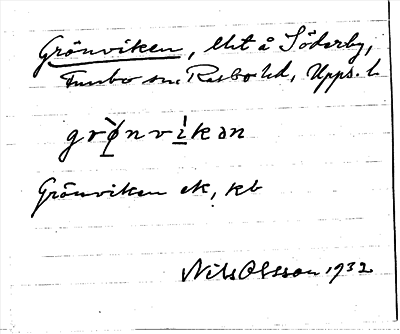 Grönviken, lht å Söderby,
Funbo sn, Rasbo hd, Upps. l.
grø̀nvi̠kən
Grönviken ek, kb
Nils Olsson 1932